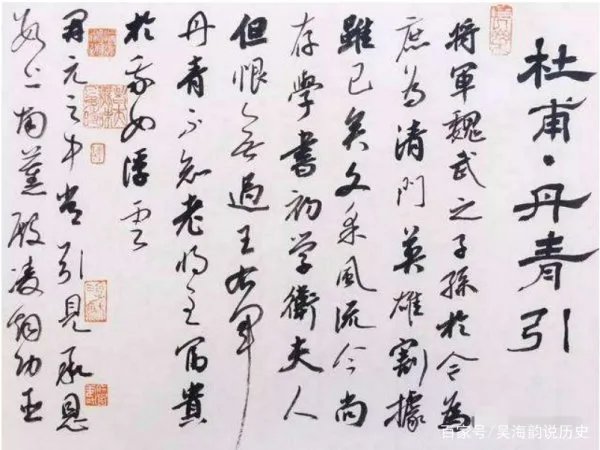 杜甫·丹青引
将軍魏武之子孫於今為
庶為清門英雄割據
雖已矣文采風流今尚
存學書初学衛夫人
但恨無過王右軍
丹青不知老将至冨貴
於我如浮雲
開元之中常引見承恩
數上南薰殿凌烟功臣
百家号/吴海韵说历史